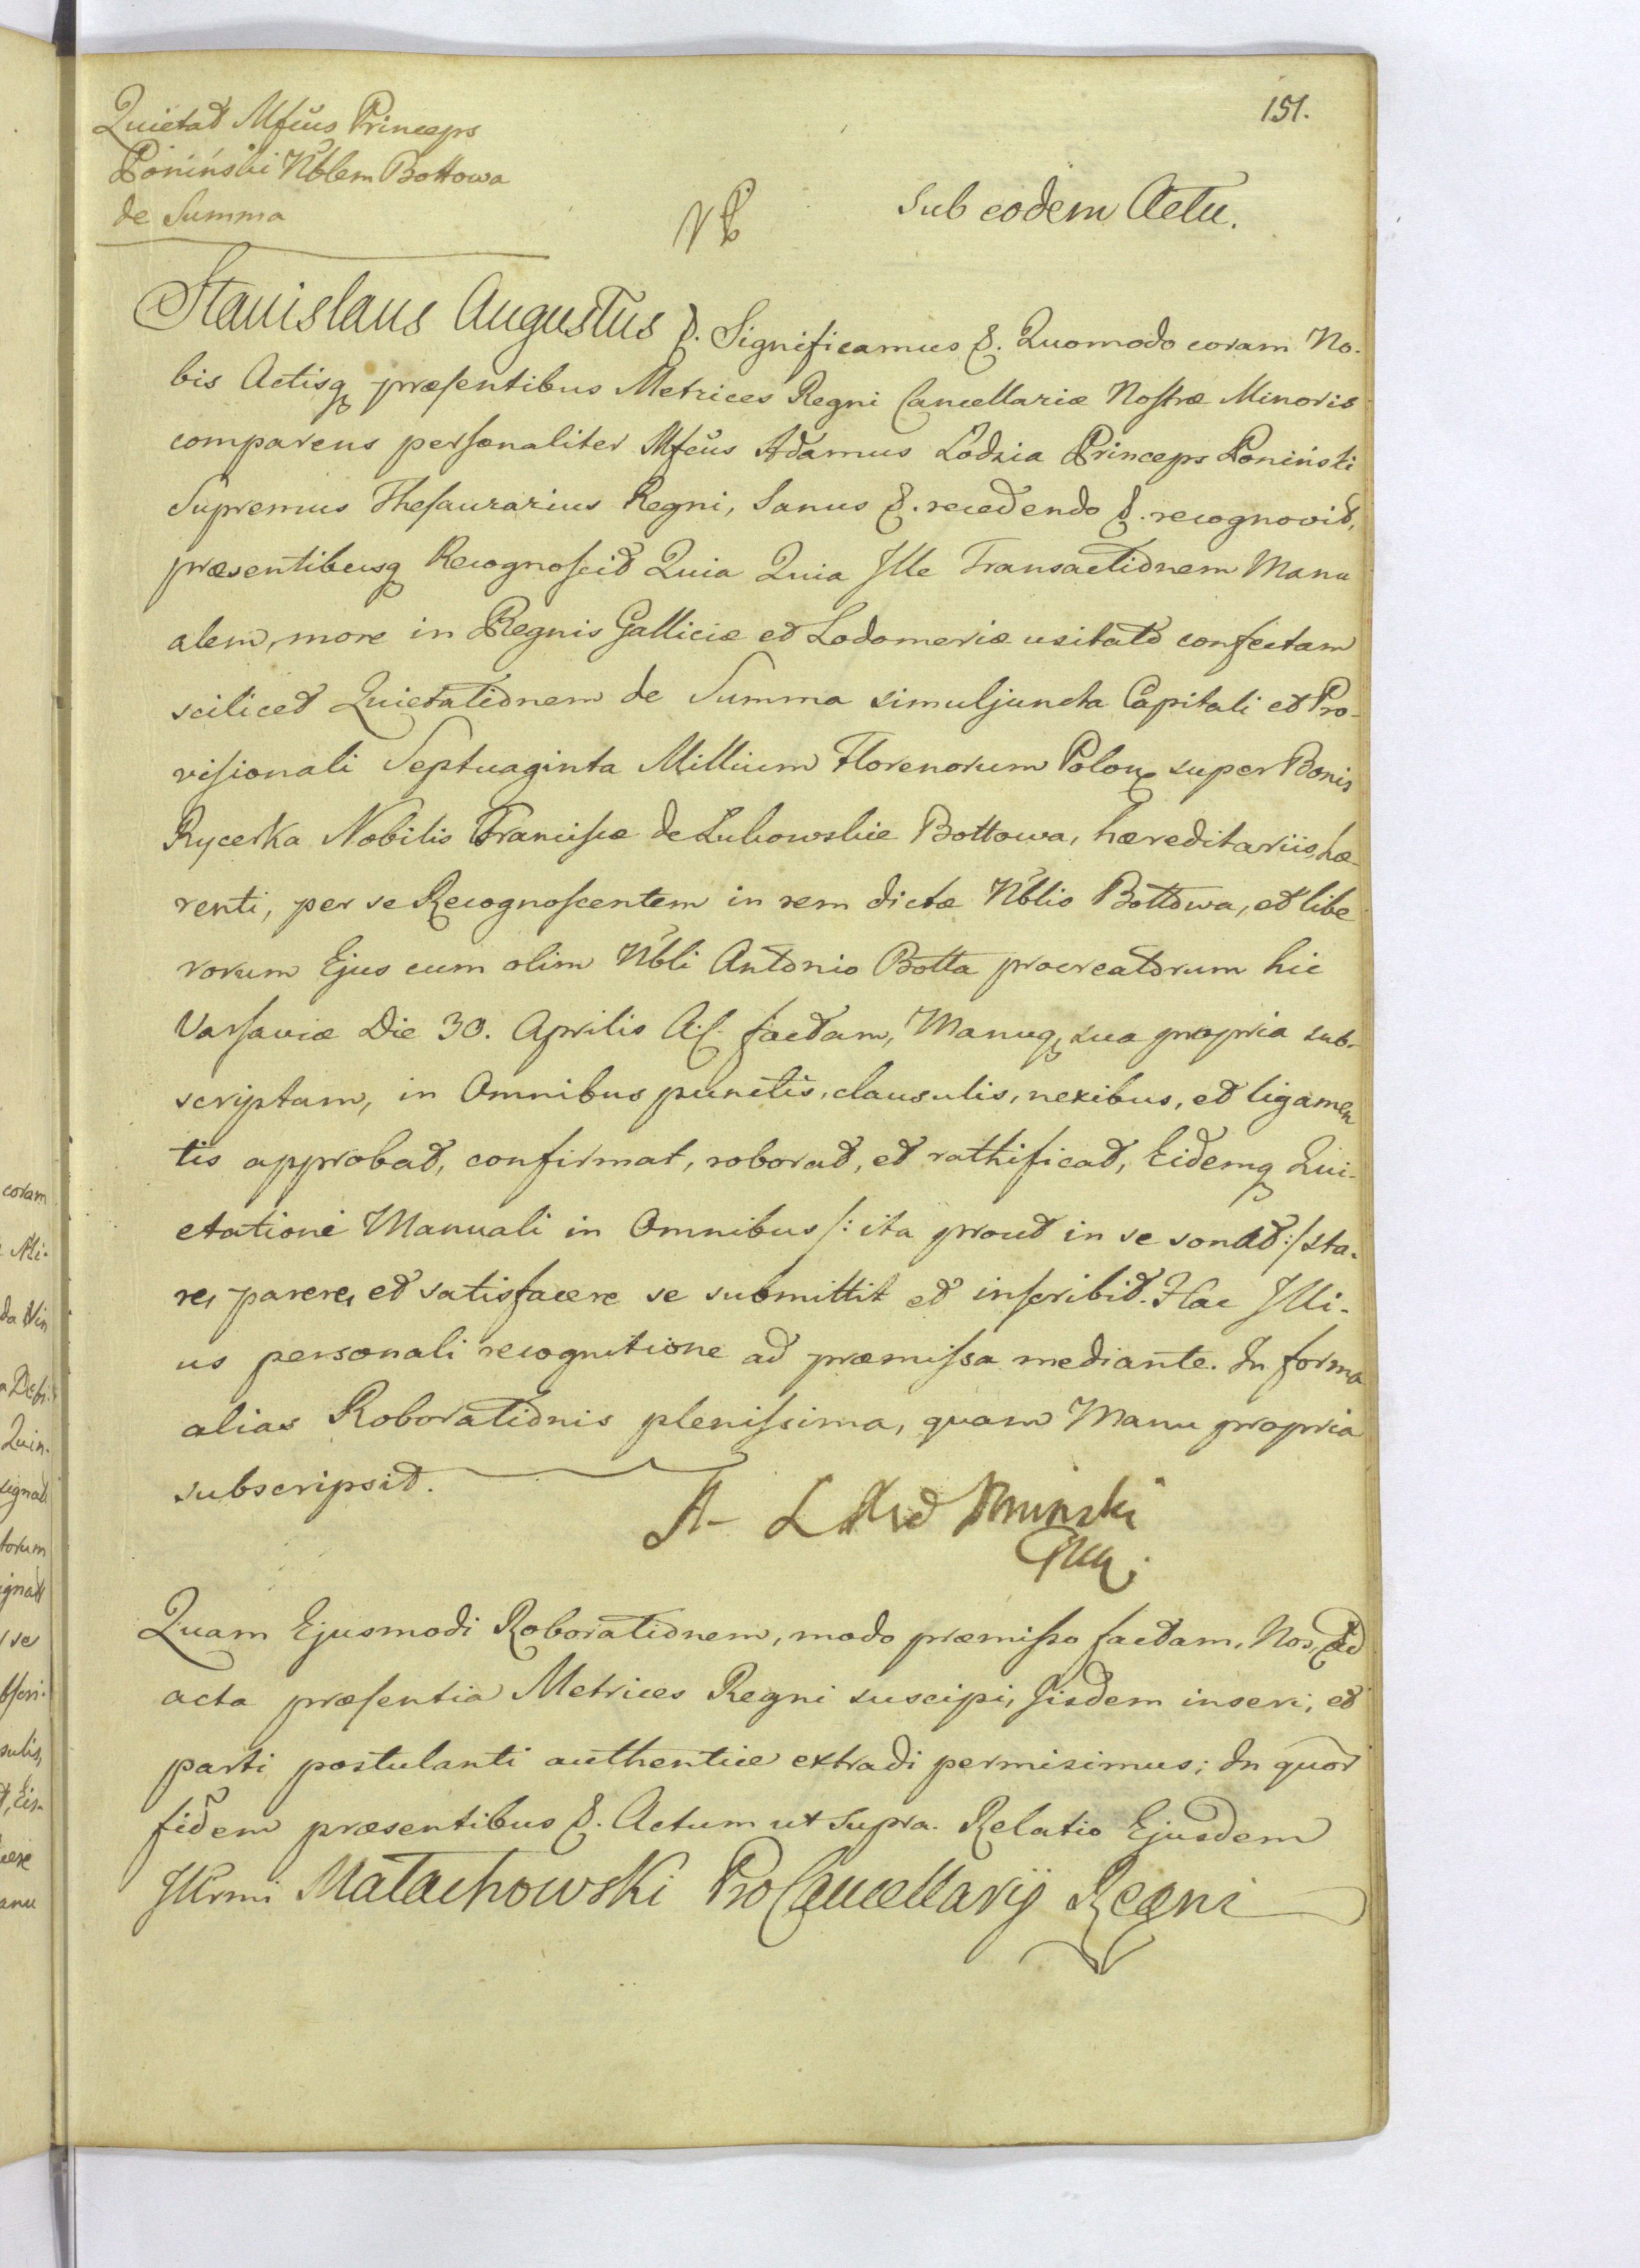 151.
Quietat Mfcus Princeps
Poniński Nblem Bottowa
de Summa
Sub eodem Actu.
Stanislaus Augustus &. Significamus &. Quomodo coram No-
bis Actisq præsentibus Metrices Regni Cancellariæ Nostræ Minoris
comparens personaliter Mfcus Adamus Łodzia Princeps Poniński
Supremus Thesaurarius Regni, Sanus &. recedendo &. recognovit,
præsentibusq Recognoscit Quia Quia Ille Transactionem Manu
alem, more in Regnis Galliciæ et Lodomeriæ usitato confectam
scilicet Quietationem de Summa simuljuncta Capitali et Pro-
visionali Septuaginta Millium Florenorum Polon super Bonis
Rycerka Nobilis Franciscæ de Lubowskie Bottowa, hæreditariis, hæ-
renti, per se Recognoscentem in rem dictæ Nblis Bottowa, et libe
rorum Ejus cum olim Nbli Antonio Botta procreatorum hic
Varsaviæ Die 30. Aprilis A. C. factam, Manuq sua propria sub-
scriptam, in Omnibus punctis, clausulis, nexibus, et ligamen
tis approbat, confirmat, roborat, et rathificat, Eidemq Qui-
etationi Manuali in Omnibus /: ita prout in se sonat :/ sta-
re, parere, et satisfacere se submittit et inscribit. Hac Illi-
us personali recognitione ad præmissa mediante. In forma
alias Roborationis plenissima, quam Manu propria
subscripsit.
A- L Poninski
Quam Ejusmodi Roborationem, modo præmisso factam, Nos, ad
acta præsentia Metrices Regni suscipi, Iisdem inseri, et
parti postulanti authentice extradi permisimus; In quor
fidem præsentibus &. Actum ut supra. Relatio Ejusdem
Illrmi Małachowski ProCancellarij Regni